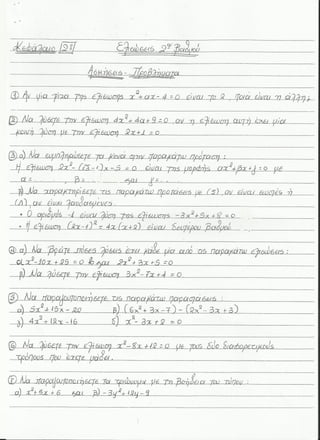 Κεφάλαιο 2ο
Εξισώσεις 2ου βαθμού
Ασκήσεις - Προβλήματα
① Αν μια ρίζα της εξίσωσης x²+αx-4=0 είναι το 2, ποια είναι η άλλη;
② Να λύσετε την εξίσωση 4x²+4α+9=0 αν η εξίσωση αυτή έχει μια
κοινή λύση με την εξίσωση 2x+1=0.
③ α) Να συμπληρώσετε τα κενά στην παρακάτω πρόταση:
Η εξίσωση 2x²-(√3-1)x-5=0 είναι της μορφής αx²+βx+γ=0 με
α=... β=... και γ=...
β) Να χαρακτηρίσετε τις παρακάτω προτάσεις με (Σ) αν είναι σωστές ή
(Λ) αν είναι λανθασμένες.
• Ο αριθμός -1 είναι λύση της εξίσωσης -3x²+5x+8=0
• Η εξίσωση (2x-1)²=4x(x+2) είναι δευτέρου βαθμού
④ α) Να βρείτε πόσες λύσεις έχει κάθε μία από τις παρακάτω εξισώσεις:
x²-10x+25=0 και 2x²+3x+5=0
β) Να λύσετε την εξίσωση 3x²-7x+4=0
⑤ Να παραγοντοποιήσετε τις παρακάτω παραστάσεις:
α) 5x²+15x-20 β) (6x²+3x-7)-(2x²-3x+3)
γ) 4x²-12x-16 δ) x²-3x+2=0
⑥ Να λύσετε την εξίσωση x²-8x+12=0 με τους δύο διαφορετικούς
τρόπους που έχετε μάθει.
⑦ Να παραγοντοποιήσετε τα τριώνυμα με τη βοήθεια του τύπου:
α) x²+5x+6 και β) -3y²+12y-9